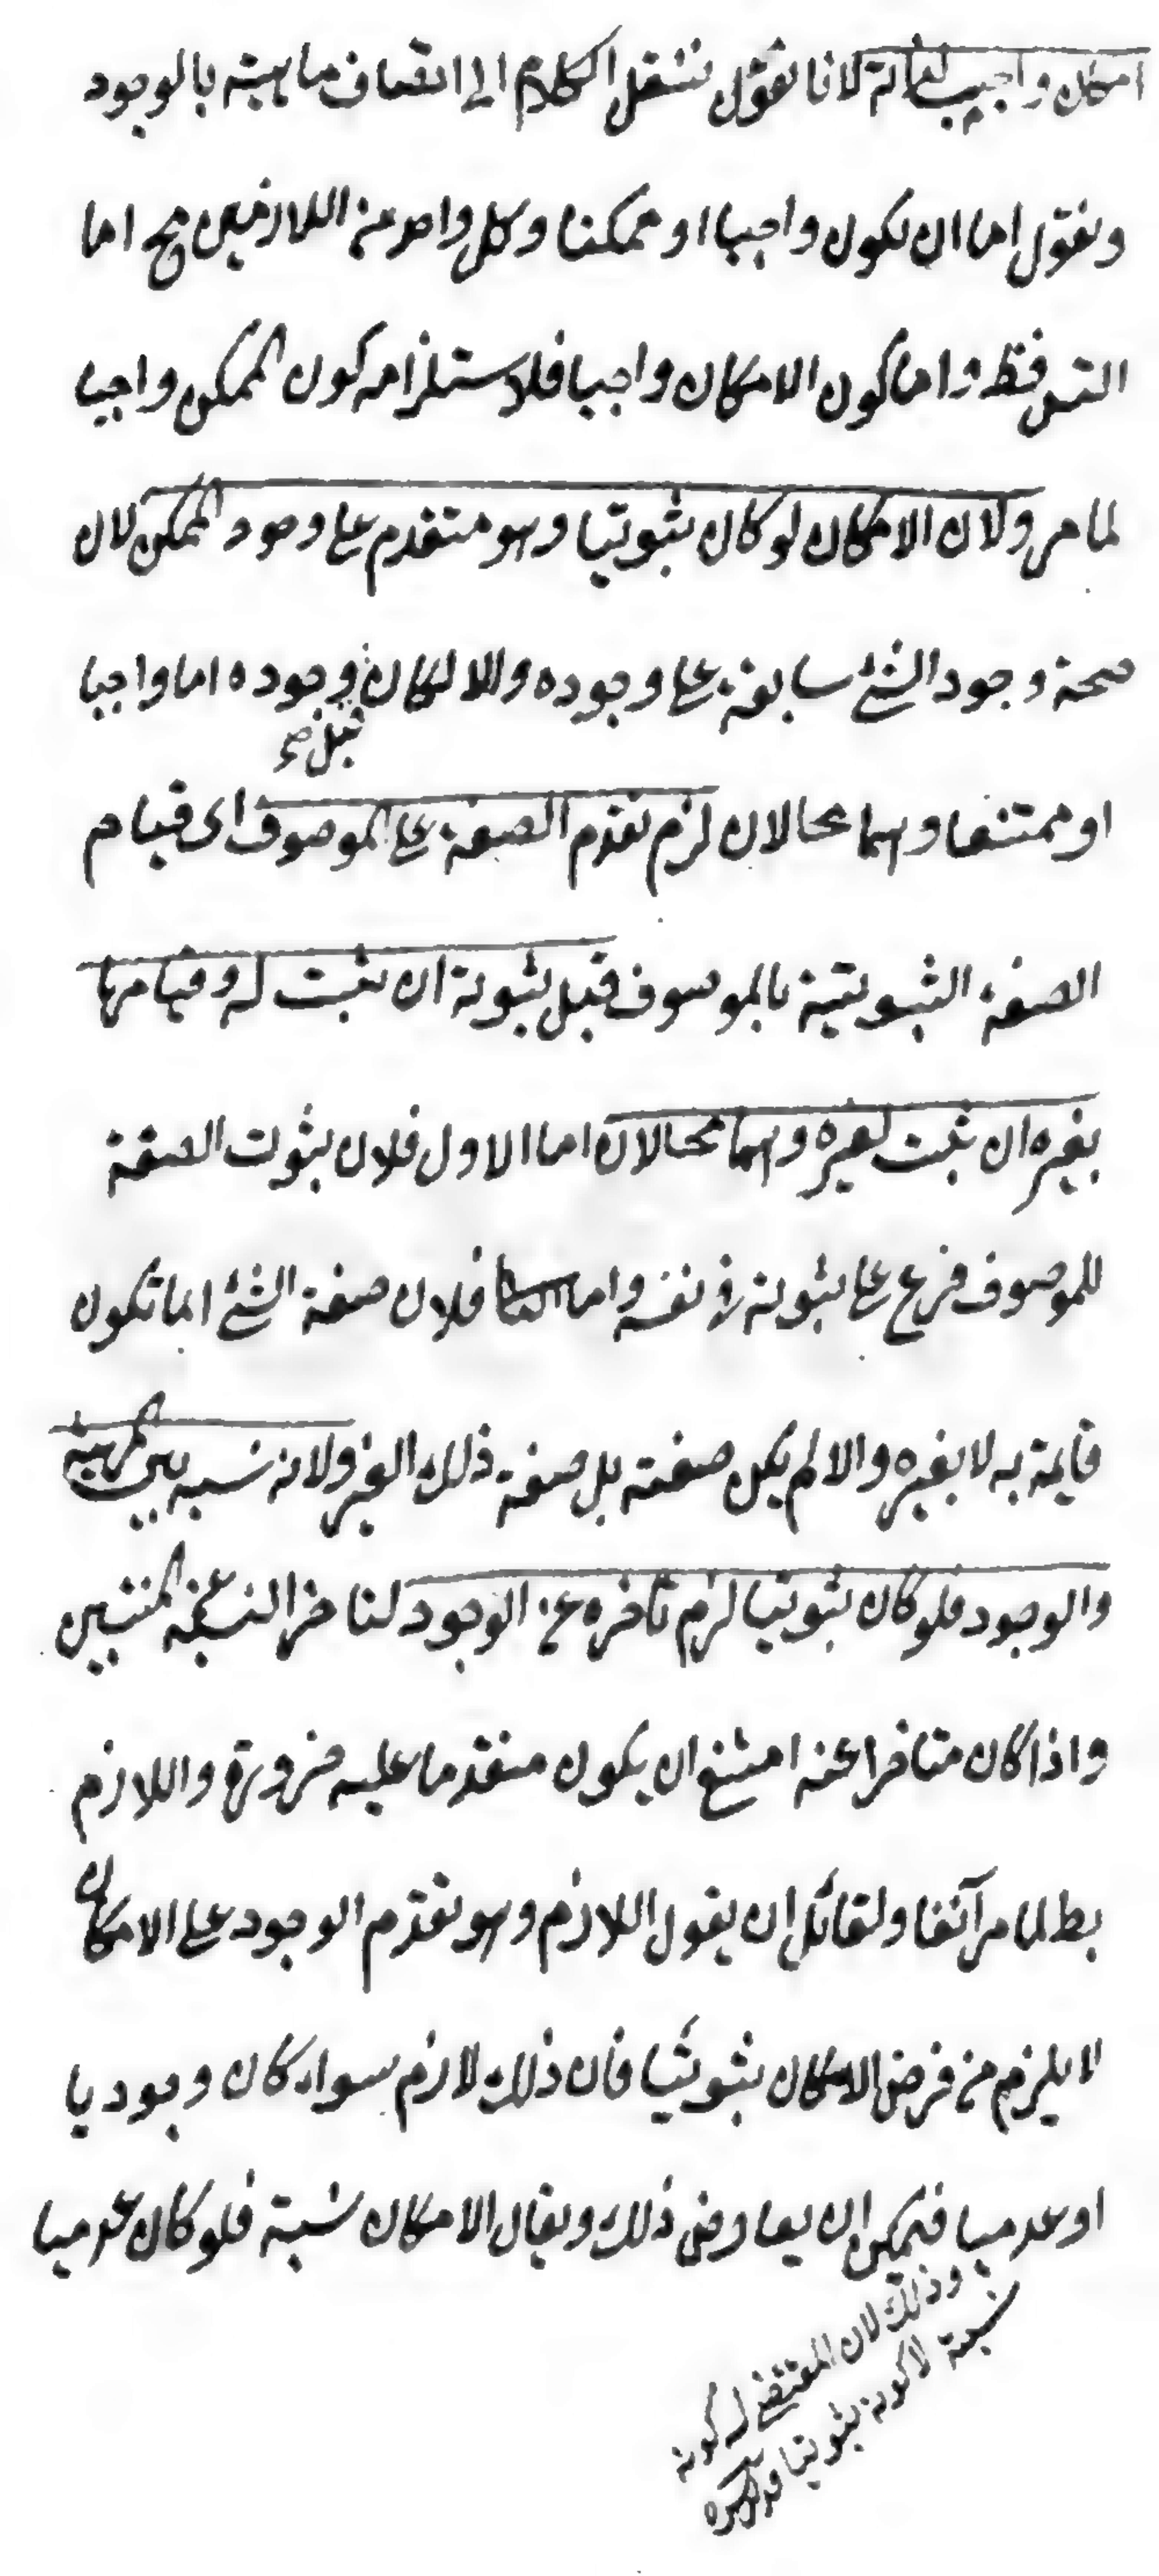 امكان واجب لذاته لانا نقول ننقل الكلام الى اتصاف ماهيته بالوجود
ونقول اما ان يكون واجبا او ممكنا وكل واحد من اللازمين مح اما
التس فظ واما كون الامكان واجبا فلاستلزامه كون الممكن واجبا
لما مر ولان الامكان لو كان ثبوتيا وهو متقدم على وجود الممكن لان
صحة وجود الشئ سابقة على وجوده والا لكان وجوده اما واجبا
قبل صح
او ممتنعا وهما محالان لزم تقدم الصفة على الموصوف اى قيام
الصفة الثبوتية بالموصوف قبل ثبوته ان ثبت له وقيامها
بغيره ان ثبت لغيره وهما محالان اما الاول فلان ثبوت الصفة
للموصوف فرع على ثبوته في نفسه واما الثانى فلان صفة الشئ انما تكون
قايمة به لا بغيره والا لم يكن صفته بل صفة ذلك الغير ولانه نسبة بين المهية
والوجود فلو كان ثبوتيا لزم تاخره عن الوجود لتاخر النسبة عن المنتسبين
واذا كان متاخرا عنه امتنع ان يكون متقدما عليه ضرورة واللازم
بط لما مر آنفا ولقائل ان يقول اللازم وهو تقدم الوجود على الامكان
لا يلزم من فرض الامكان ثبوتيا فان ذلك لازم سواء كان وجوديا
او عدميا فيمكن ان يعارض ذلك ويقال الامكان نسبة فلو كان عدميا
وذلك لان المقتضى له كونه
نسبة لا كونه ثبوتيا